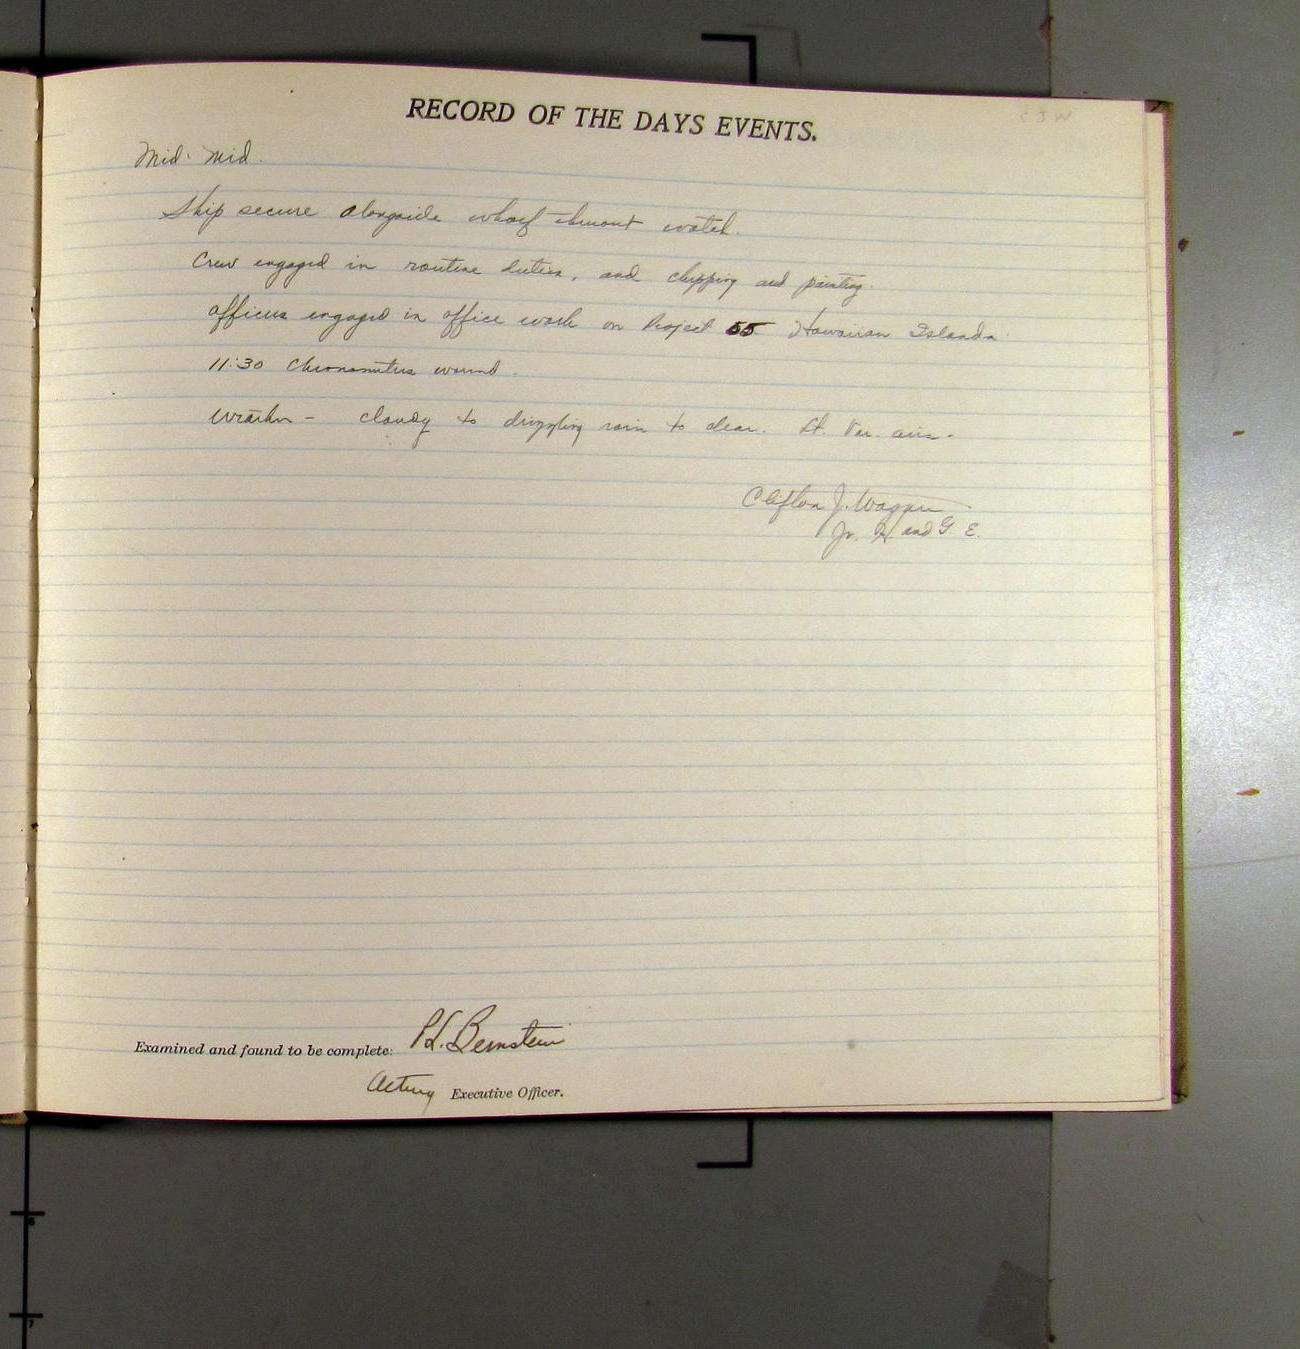 RECORD OF THE DAYS EVENTS.
CJW
Mid. Mid.
Ship secure alongside wharf watch.
Crew engaged in routine duties, and chipping and painting.
Officers engaged in office work on Project 55 Hawaiian Islands
11:30 Chronometers wound.
Weather - cloudy to drizzling rain to clear. Lt. Var. airs.
Clifton J. Wagner
Jr. H and G. E.
Examined and found to be complete: P.L. Bernstein
Acting Executive Officer.
6
7